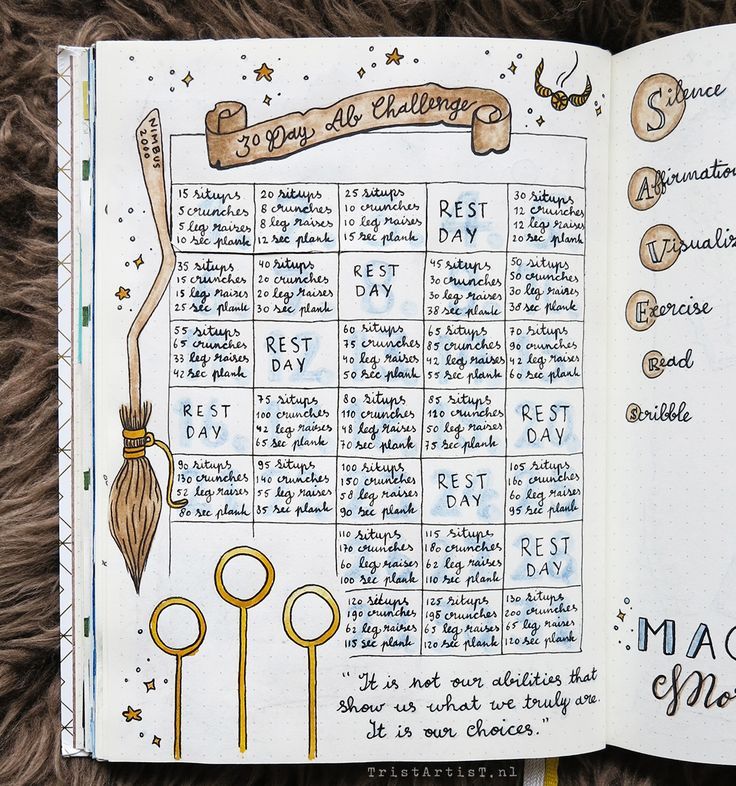 NIMBUS
2000
30 Day Ab Challenge
15 situps
5 crunches
5 leg raises
10 sec plank
20 situps
8 crunches
8 leg raises
12 sec plank
25 situps
10 crunches
10 leg raises
15 sec plank
REST
DAY
30 situps
12 crunches
12 leg raises
20 sec plank
35 situps
15 crunches
15 leg raises
25 sec plank
40 situps
20 crunches
20 leg raises
30 sec plank
REST
DAY
45 situps
30 crunches
30 leg raises
38 sec plank
50 situps
50 crunches
30 leg raises
38 sec plank
55 situps
65 crunches
33 leg raises
42 sec plank
REST
DAY
60 situps
75 crunches
40 leg raises
50 sec plank
65 situps
85 crunches
42 leg raises
55 sec plank
70 situps
90 crunches
42 leg raises
60 sec plank
REST
DAY
75 situps
100 crunches
42 leg raises
65 sec plank
80 situps
110 crunches
48 leg raises
70 sec plank
85 situps
120 crunches
50 leg raises
75 sec plank
REST
DAY
90 situps
130 crunches
52 leg raises
80 sec plank
95 situps
140 crunches
55 leg raises
85 sec plank
100 situps
150 crunches
58 leg raises
90 sec plank
REST
DAY
105 situps
160 crunches
60 leg raises
95 sec plank
110 situps
170 crunches
60 leg raises
100 sec plank
115 situps
180 crunches
62 leg raises
110 sec plank
REST
DAY
120 situps
190 crunches
62 leg raises
115 sec plank
125 situps
195 crunches
65 leg raises
120 sec plank
130 situps
200 crunches
65 leg raises
120 sec plank
"It is not our abilities that
show us what we truly are.
It is our choices."
TristArtisT.nl
Silence
Affirmation
Visualiz
Exercise
Read
Scribble
MA